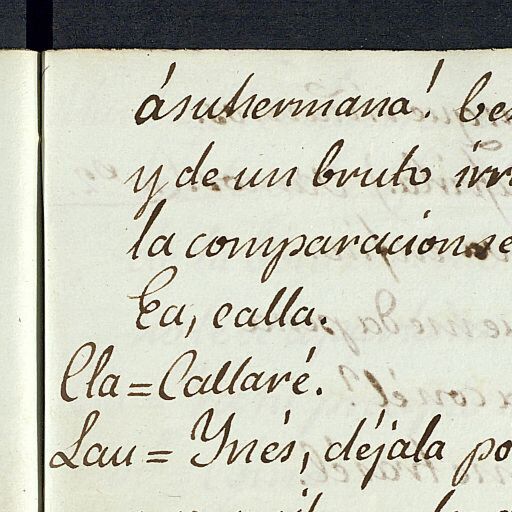 á su hermana! bes
y de un bruto irr
la comparacion se
Ea, calla.
Cla = Callaré.
Lau = Ynés, déjala po